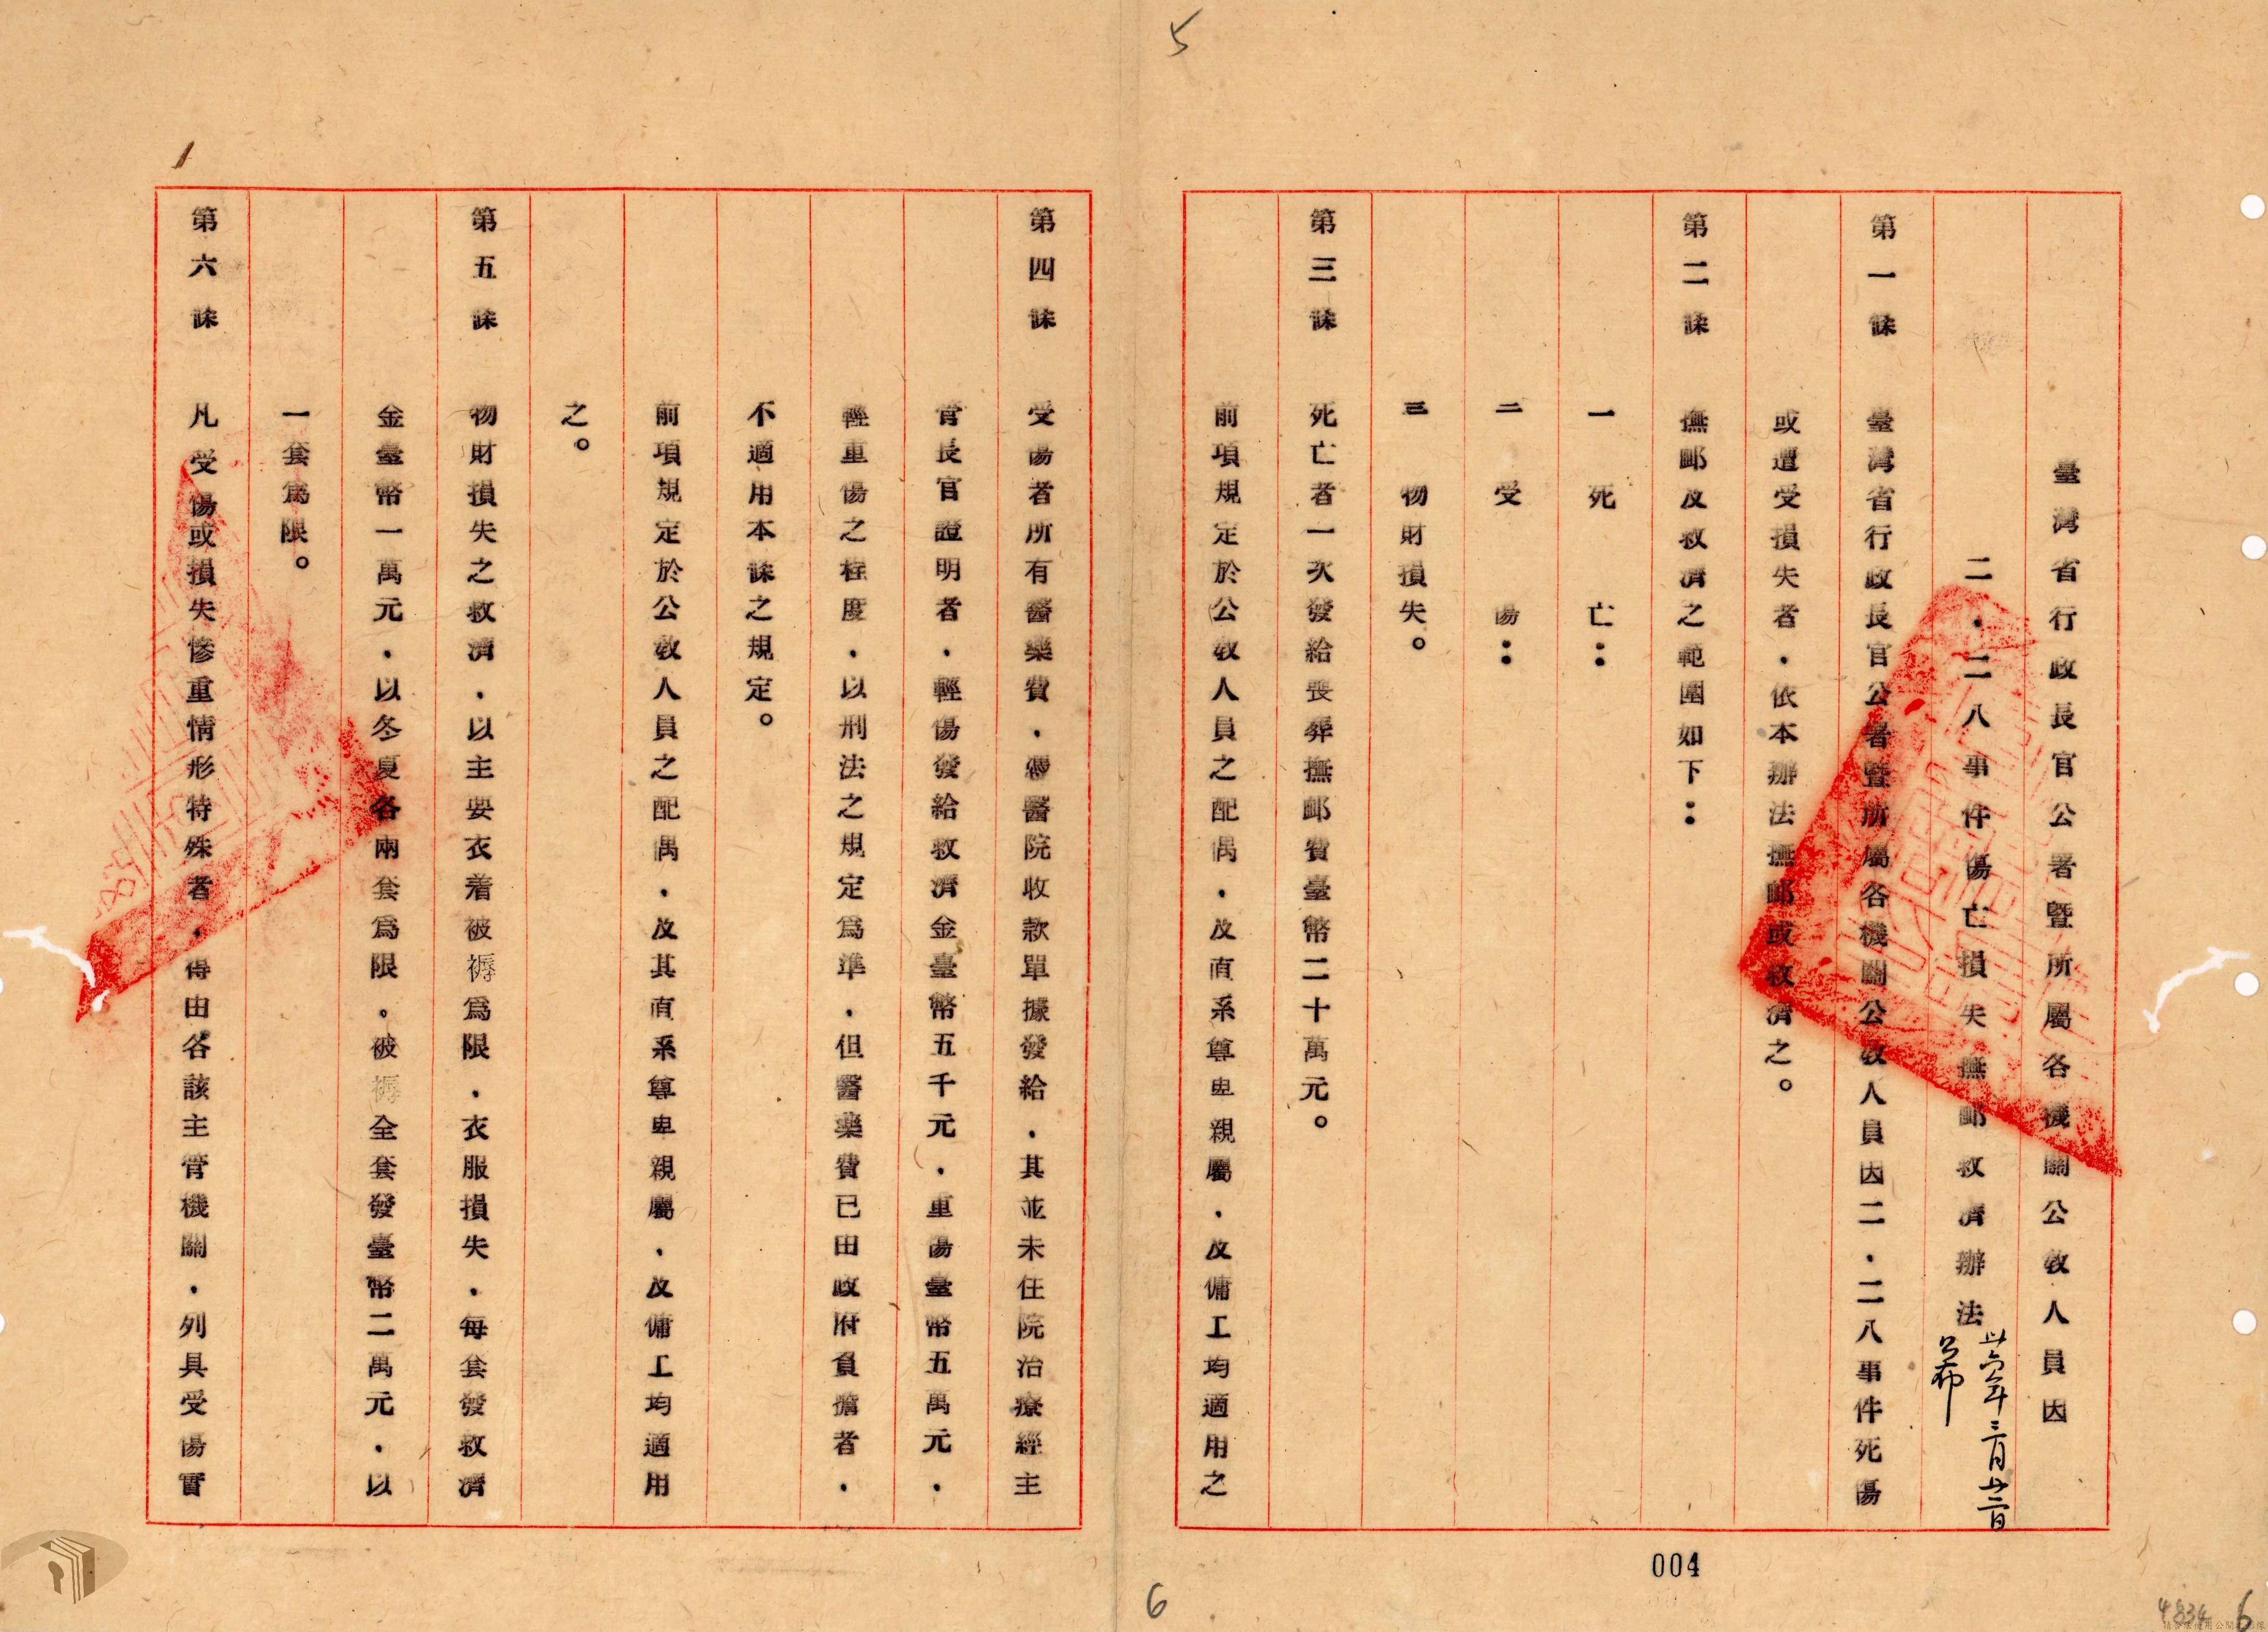 臺灣省行政長官公署暨所屬各機關公教人員因
二．二八事件傷亡損失撫卹救濟辦法
卅六年三月廿二日
公布
第一條　臺灣省行政長官公署暨所屬各機關公教人員因二．二八事件死傷
或遭受損失者．依本辦法撫卹或救濟之。
第二條　撫卹及救濟之範圍如下：
一　死　亡：
二　受　傷：
三　物財損失。
第三條　死亡者一次發給喪葬撫卹費臺幣二十萬元。
前項規定於公教人員之配偶．及直系尊卑親屬．及傭工均適用之
第四條　受傷者所有醫藥費．憑醫院收款單據發給．其並未住院治療經主
管長官證明者．輕傷發給救濟金臺幣五千元．重傷臺幣五萬元．
輕重傷之程度．以刑法之規定為準．但醫藥費已由政府負擔者．
不適用本條之規定。
前項規定於公教人員之配偶．及其直系尊卑親屬．及傭工均適用
之。
第五條　物財損失之救濟．以主要衣着被褥為限．衣服損失．每套發救濟
金臺幣一萬元．以冬夏各兩套為限。被褥全套發臺幣二萬元．以
一套為限。
第六條　凡受傷或損失慘重情形特殊者．得由各該主管機關．列具受傷實
5
1
004
6
4834
6